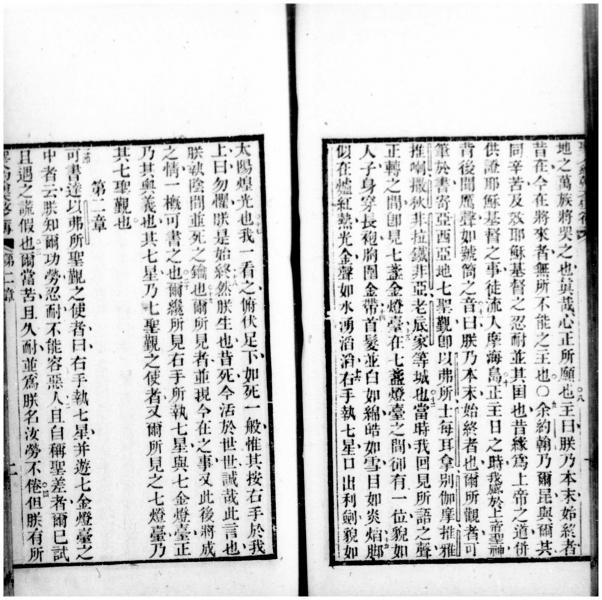 地之萬族將哭之也眞哉心正所願也主曰朕乃本末始終者
昔在今在將來者無所不能之主也○余約翰乃爾昆與爾其
同辛苦及效耶穌基督之忍耐並其国也昔緣爲上帝之道併
供證耶穌基督之事徒流人摩海島正主日之時我感於上帝聖神
背後聞厲聲如號筒之音曰朕乃本末始終者也爾所觀者可
筆於書寄亞西亞地七聖觀卽以弗所士每耳拿別伽摩推雅
推喇撒狄非拉鐵非亞老底家等城也當時我回見所語之聲
正轉之間卽見七盞金燈臺在七盞燈臺之間彿有一位貌如
人子身穿長袍胸圍金帶首髮並白如綿皓如雪目如炎焰脚
似在爐紅熱光金聲如水湧滔滔右手執七星口出利劍貌如
太陽煌光也我一看之俯伏足下如死一般惟其按右手於我
上曰勿懼朕是始終然朕生也昔死今活於世世誠哉此言也
朕執陰間並死之鑰也爾所見者並現今在之事又此後將成
之情一槪可書之也爾纔所見右手所執七星與七金燈臺正
乃其奧義也其七星乃七聖觀之使者又爾所見之七燈臺乃
其七聖觀也
第二章
可書達以弗所聖觀之使者曰右手執七星并遊七金燈臺之
中者云朕知爾功勞忍耐不能容惡人且自稱聖差者爾已試
且遇之謊假也爾當苦且久耐並爲朕名汝勞不倦但朕有所
第二章